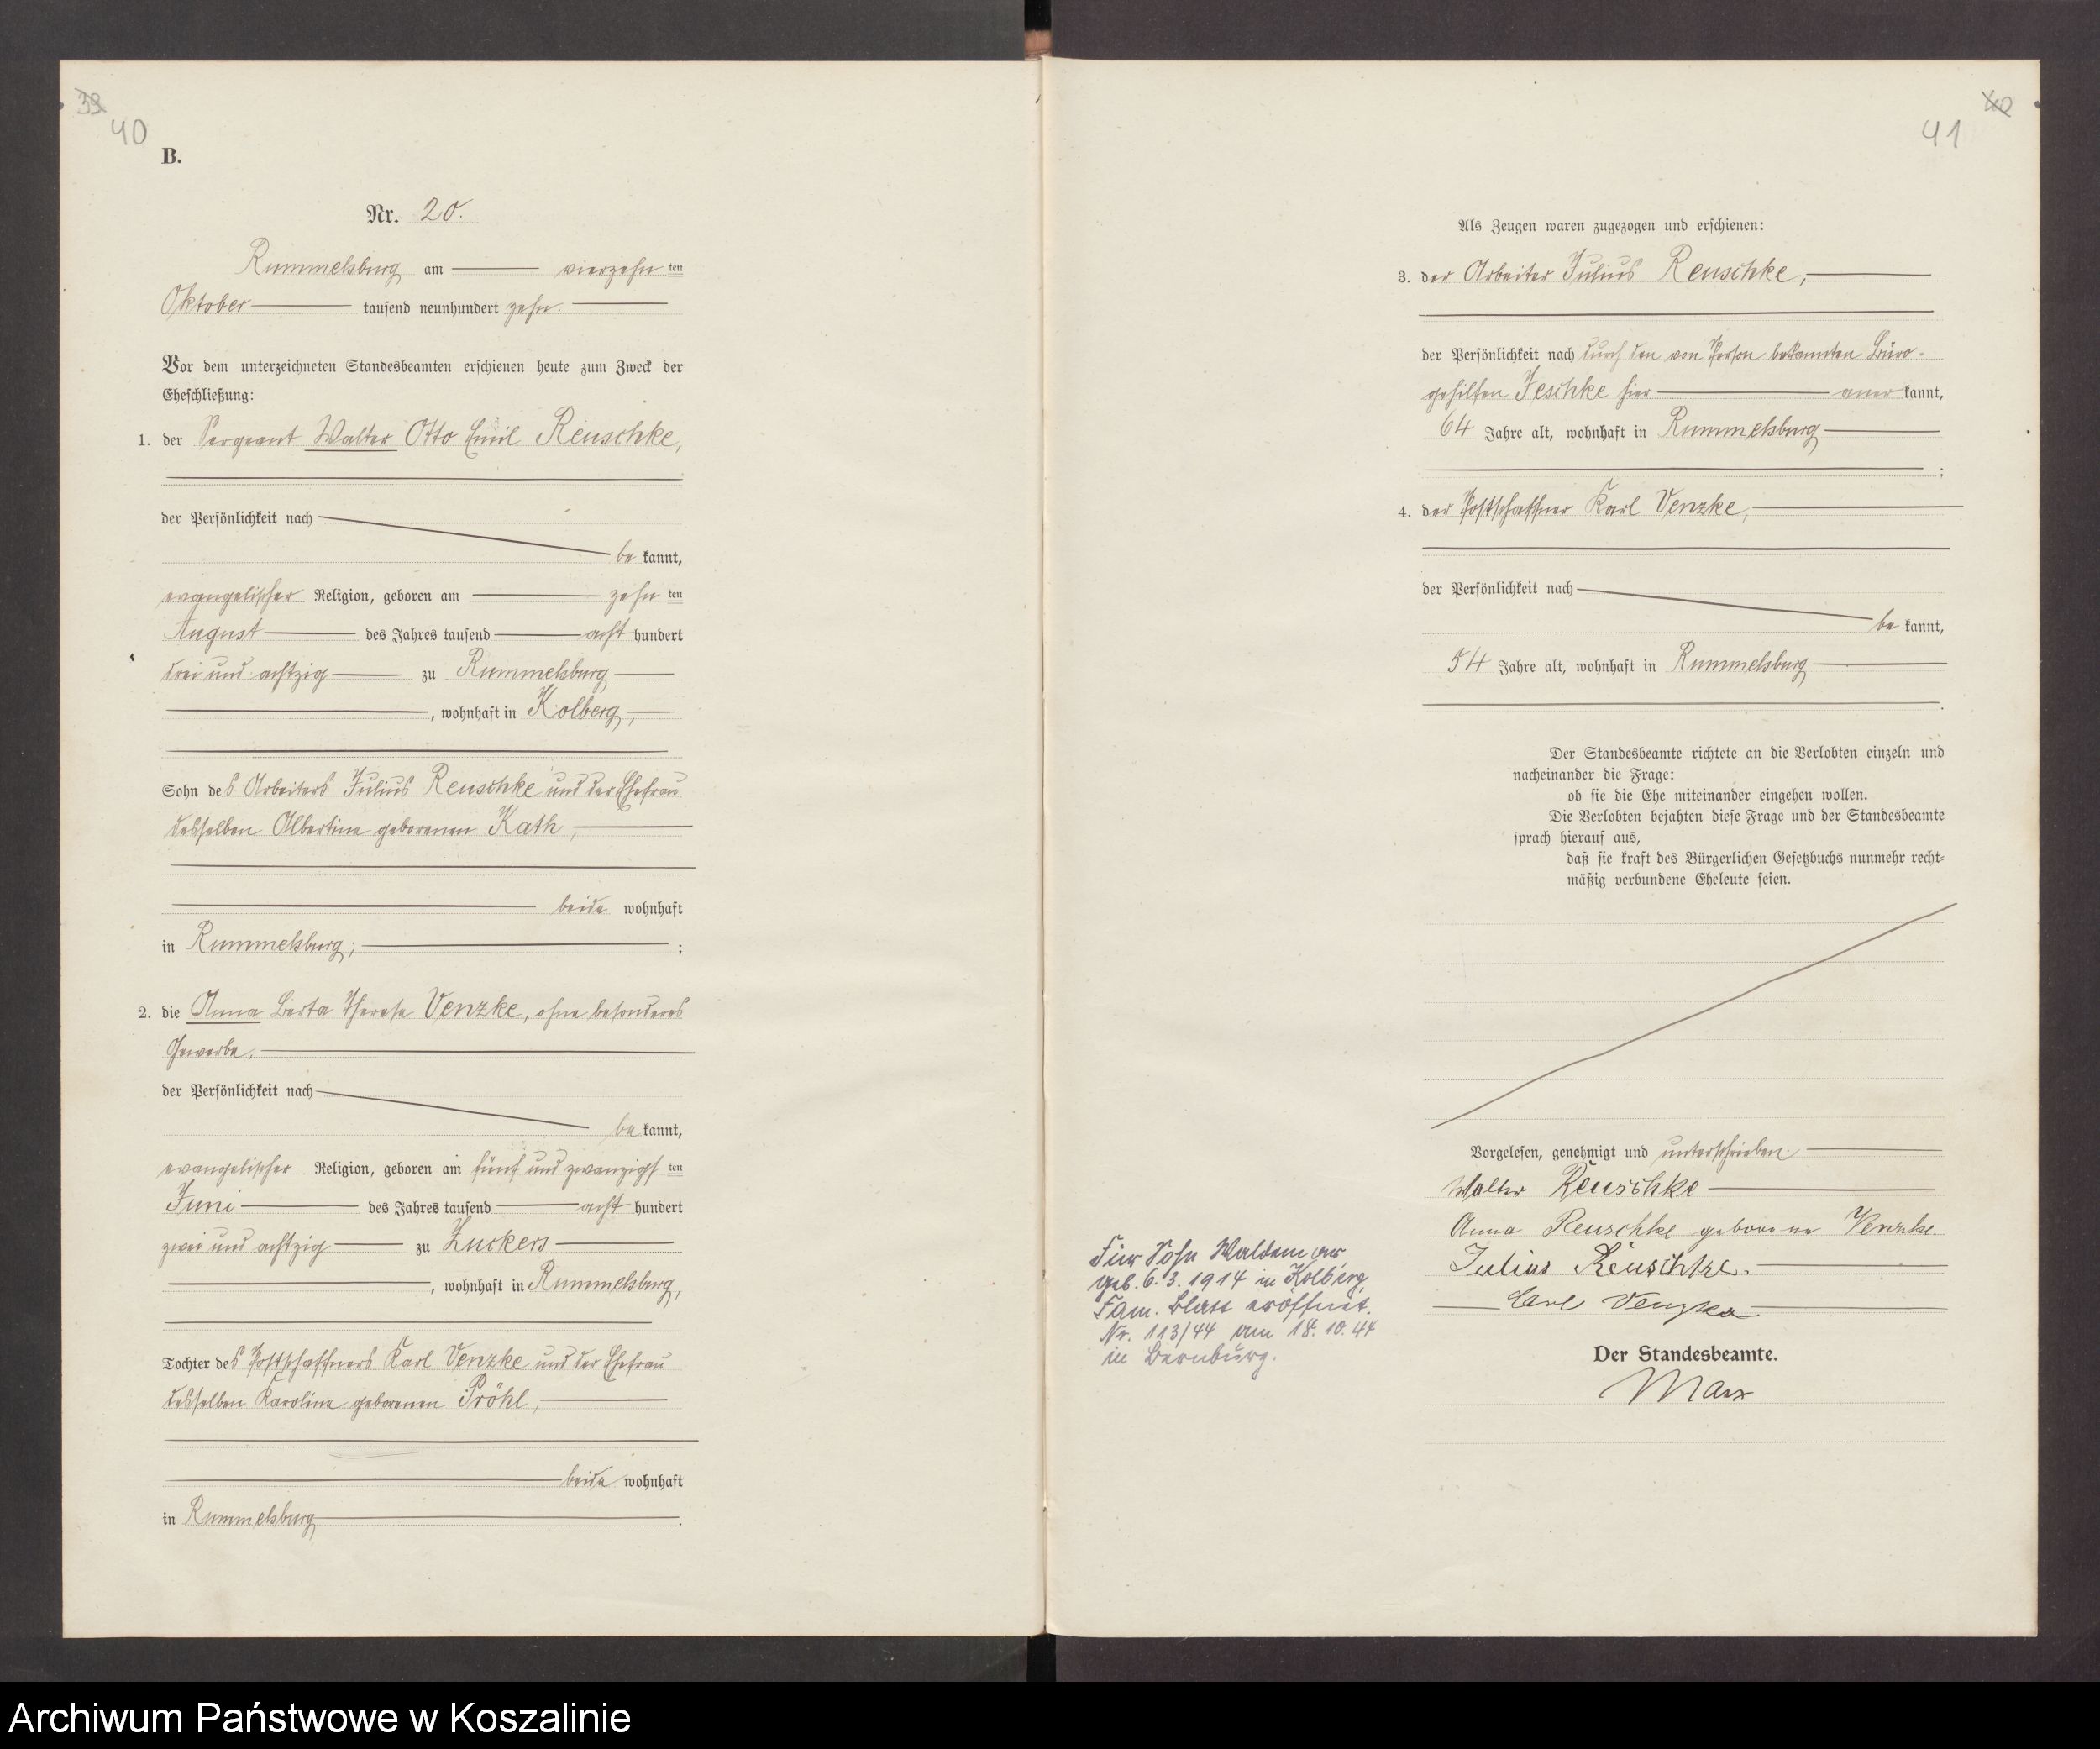 39
40
B.
Nr. 20.
Rummelsburg am vierzehn ten
Oktober tausend neunhundert zehn.
Vor dem unterzeichneten Standesbeamten erschienen heute zum Zweck der
Eheschließung:
1. der Sergeant Walter Otto Emil Reuschke,
der Persönlichkeit nach
be kannt,
evangelischer Religion, geboren am zehn ten
August des Jahres tausend acht hundert
drei und achtzig zu Rummelsburg
, wohnhaft in Kolberg,
Sohn des Arbeiters Julius Reuschke und der Ehefrau
desselben Albertine geborenen Kath,
beide wohnhaft
in Rummelsburg; ;
2. die Anna Berta Therese Venzke, ohne besonderes
Gewerbe,
der Persönlichkeit nach
be kannt,
evangelischer Religion, geboren am fünf und zwanzigst ten
Juni des Jahres tausend acht hundert
zwei und achtzig zu Zuckers
, wohnhaft in Rummelsburg,
Tochter des Postschaffners Karl Venzke und der Ehefrau
desselben Karoline geborenen Pröhl,
beide wohnhaft
in Rummelsburg .
40
41
Als Zeugen waren zugezogen und erschienen:
3. der Arbeiter Julius Reuschke,
der Persönlichkeit nach durch den von Person bekannten Büro-
gehilfen Jeschke hier aner kannt,
64 Jahre alt, wohnhaft in Rummelsburg
;
4. der Postschaffner Karl Venzke,
der Persönlichkeit nach
be kannt,
54 Jahre alt, wohnhaft in Rummelsburg
.
Der Standesbeamte richtete an die Verlobten einzeln und
nacheinander die Frage:
ob sie die Ehe miteinander eingehen wollen.
Die Verlobten bejahten diese Frage und der Standesbeamte
sprach hierauf aus,
daß sie kraft des Bürgerlichen Gesetzbuchs nunmehr recht-
mäßig verbundene Eheleute seien.
Vorgelesen, genehmigt und unterschrieben.
Walter Reuschke
Anna Reuschke geborene Venzke.
Julius Reuschke.
Carl Venzke
Der Standesbeamte.
Marx
Für Sohn Waldemar,
geb. 6.3.1914 in Kolberg,
Fam. Blatt eröffnet.
Nr. 113/44 am 18.10.44
in Bernburg.
Archiwum Państwowe w Koszalinie